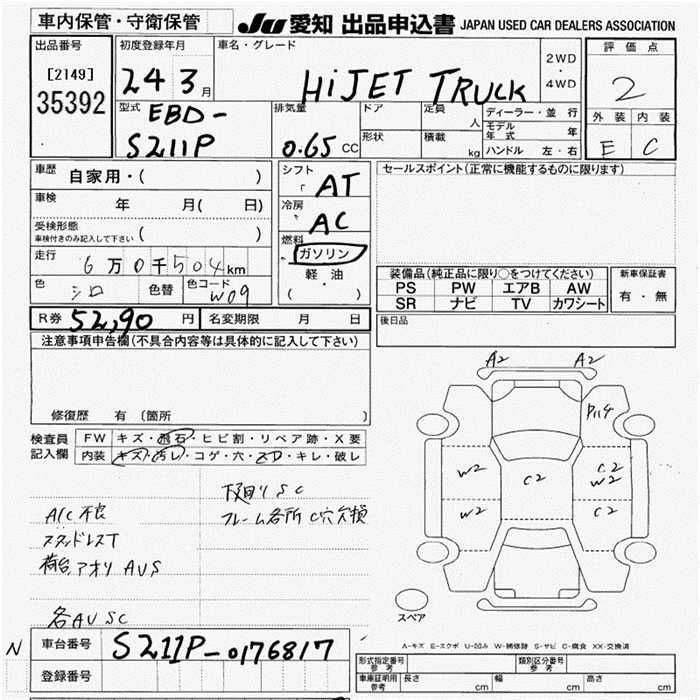 車内保管・守衛保管
JU 愛知 出品申込書 JAPAN USED CAR DEALERS ASSOCIATION
出品番号
[2149]
35392
初度登録年月
24 3月
車名・グレード
HiJET TRUCK
2WD
・
4WD
評価点
2
外装 内装
E C
型式
EBD-
S211P
排気量
0.65 CC
ドア
定員
人
形状
積載
kg
ディーラー・並行
モデル
年式 年
ハンドル 左・右
車歴
自家用・( )
車検
年 月( 日)
受検形態
車検付きのみ記入して下さい ( )
走行
6万0千504km
色
シロ
色替
色コード
W09
シフト
AT
冷房
AC
燃料
ガソリン
・
軽油
・
( )
セールスポイント(正常に機能するものに限ります)
装備品(純正品に限り○をつけてください)
PS PW エアB AW
SR ナビ TV カワシート
新車保証書
有・無
R券 52,90 円 名変期限 月 日
後日品
注意事項申告欄(不具合内容等は具体的に記入して下さい)
修復歴 有 〔箇所 〕
検査員
記入欄
FW キズ・飛石・ヒビ割・リペア跡・X要
内装 キズ・汚レ・コゲ・穴・スレ・キレ・破レ
A/C不良
スタッドレスT
荷台アオリAUS
各AUSC
下回りSC
フレーム各所C穴欠損
A2 A2
P14
W2
C2
C2
W2
W2
C2
スペア
A-キズ E-エクボ U-凹み W-補修跡 S-サビ C-腐食 XX-交換済
N
車台番号
S211P-0176817
登録番号
形式指定番号
参考
類別区分番号
参考
車庫証明用
参考
長さ cm 幅 cm 高さ cm